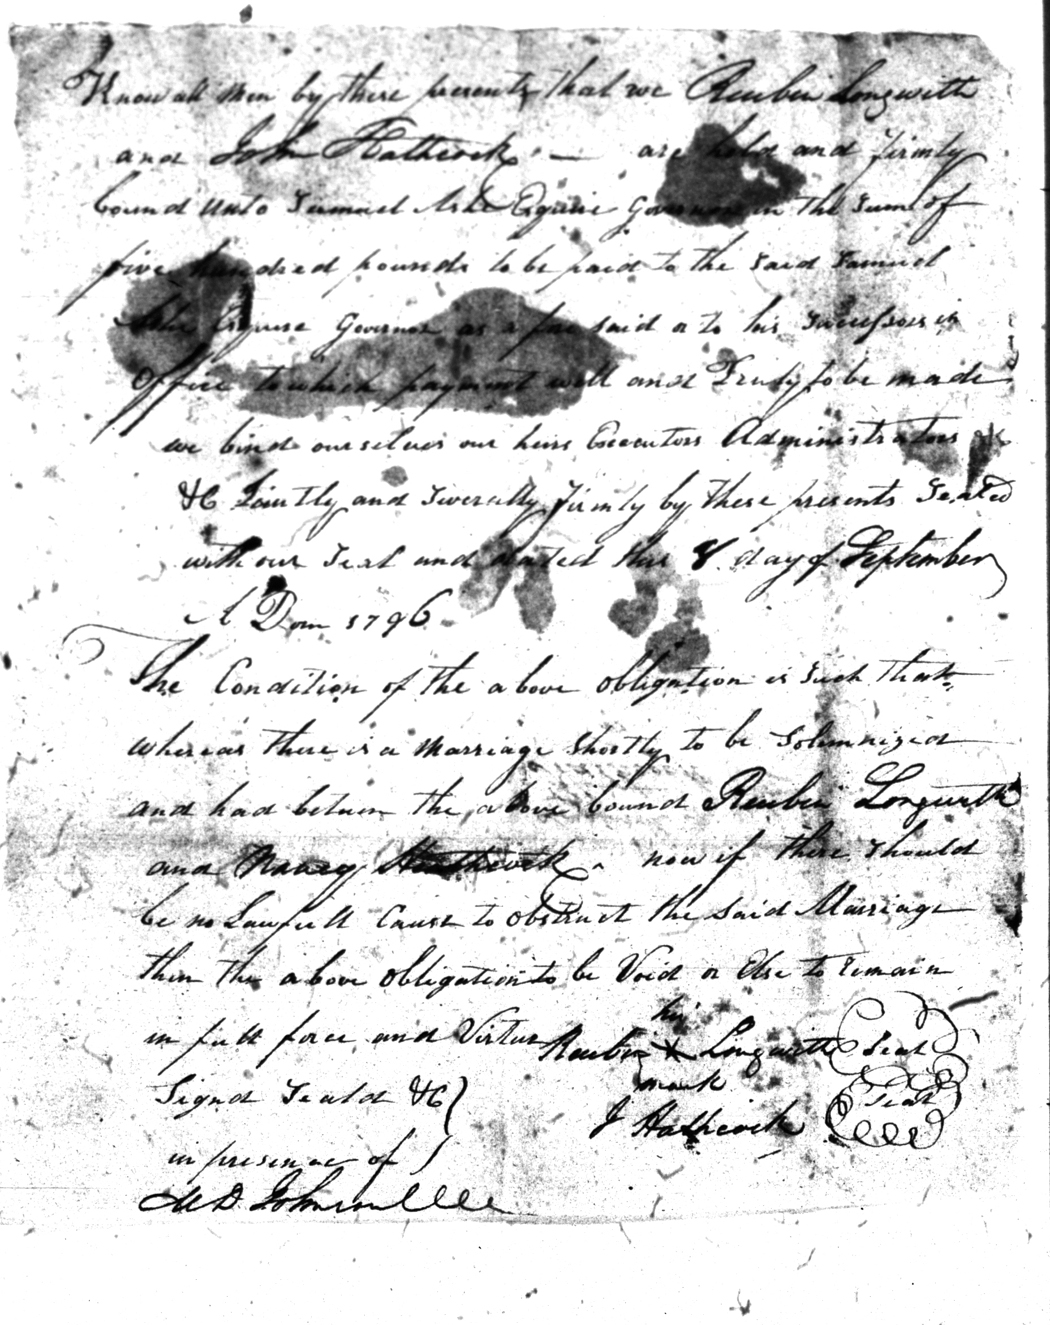 Know all Men by these presents that we Reuben Longwith
and John Hathcock — are held and firmly
bound unto Samuel Ashe Esquire Governor in the Sum of
five hundred pounds to be paid to the said Samuel
Ashe Esquire Governor as a fore said or to his Successors in
Office to which payment well and Truly to be made
we bind ourselves our heirs Executors Administrators
&C Jointly and Severally firmly by these presents Sealed
with our Seal and dated this 8 day of September
A Dom 1796
The Condition of the above obligation is Such that
whereas there is a Marriage Shortly to be Solemnized
and had betwen the above bound Reuben Longwith
and Nancy Hathcock now if there Should
be no Lawfull Cause to obstruct the Said Marriage
then the above obligation to be Void or Else to remain
in full force and Virtue
his
Reuben X Longwith Seal
mark
Signd Seald &C
J Hathcock Seal
in presence of
M D Johnson